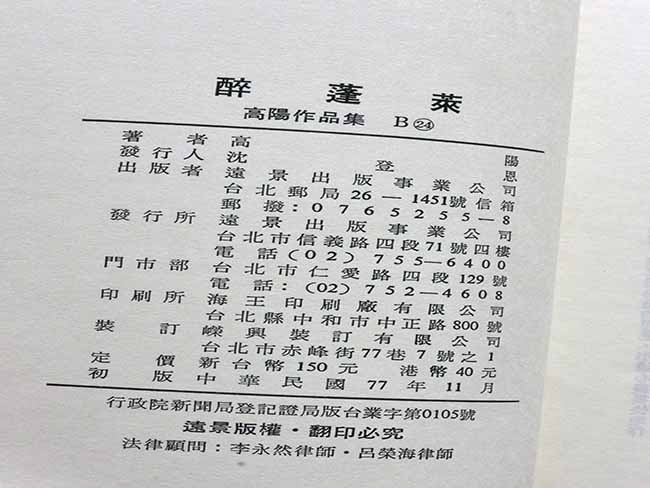 醉蓬萊
高陽作品集 B㉔
著者 高陽
發行人 沈登恩
出版者 遠景出版事業公司
台北郵局26—1451號信箱
郵撥:0765255—8
發行所 遠景出版事業公司
台北市信義路四段71號四樓
電話(02)755—6400
門市部 台北市仁愛路四段129號
電話:(02)752—4608
印刷所 海王印刷廠有限公司
台北縣中和市中正路800號
裝訂 嶸興裝訂有限公司
台北市赤峰街77巷7號之1
定價 新台幣150元 港幣40元
初版 中華民國77年11月
行政院新聞局登記證局版台業字第0105號
遠景版權・翻印必究
法律顧問:李永然律師・呂榮海律師